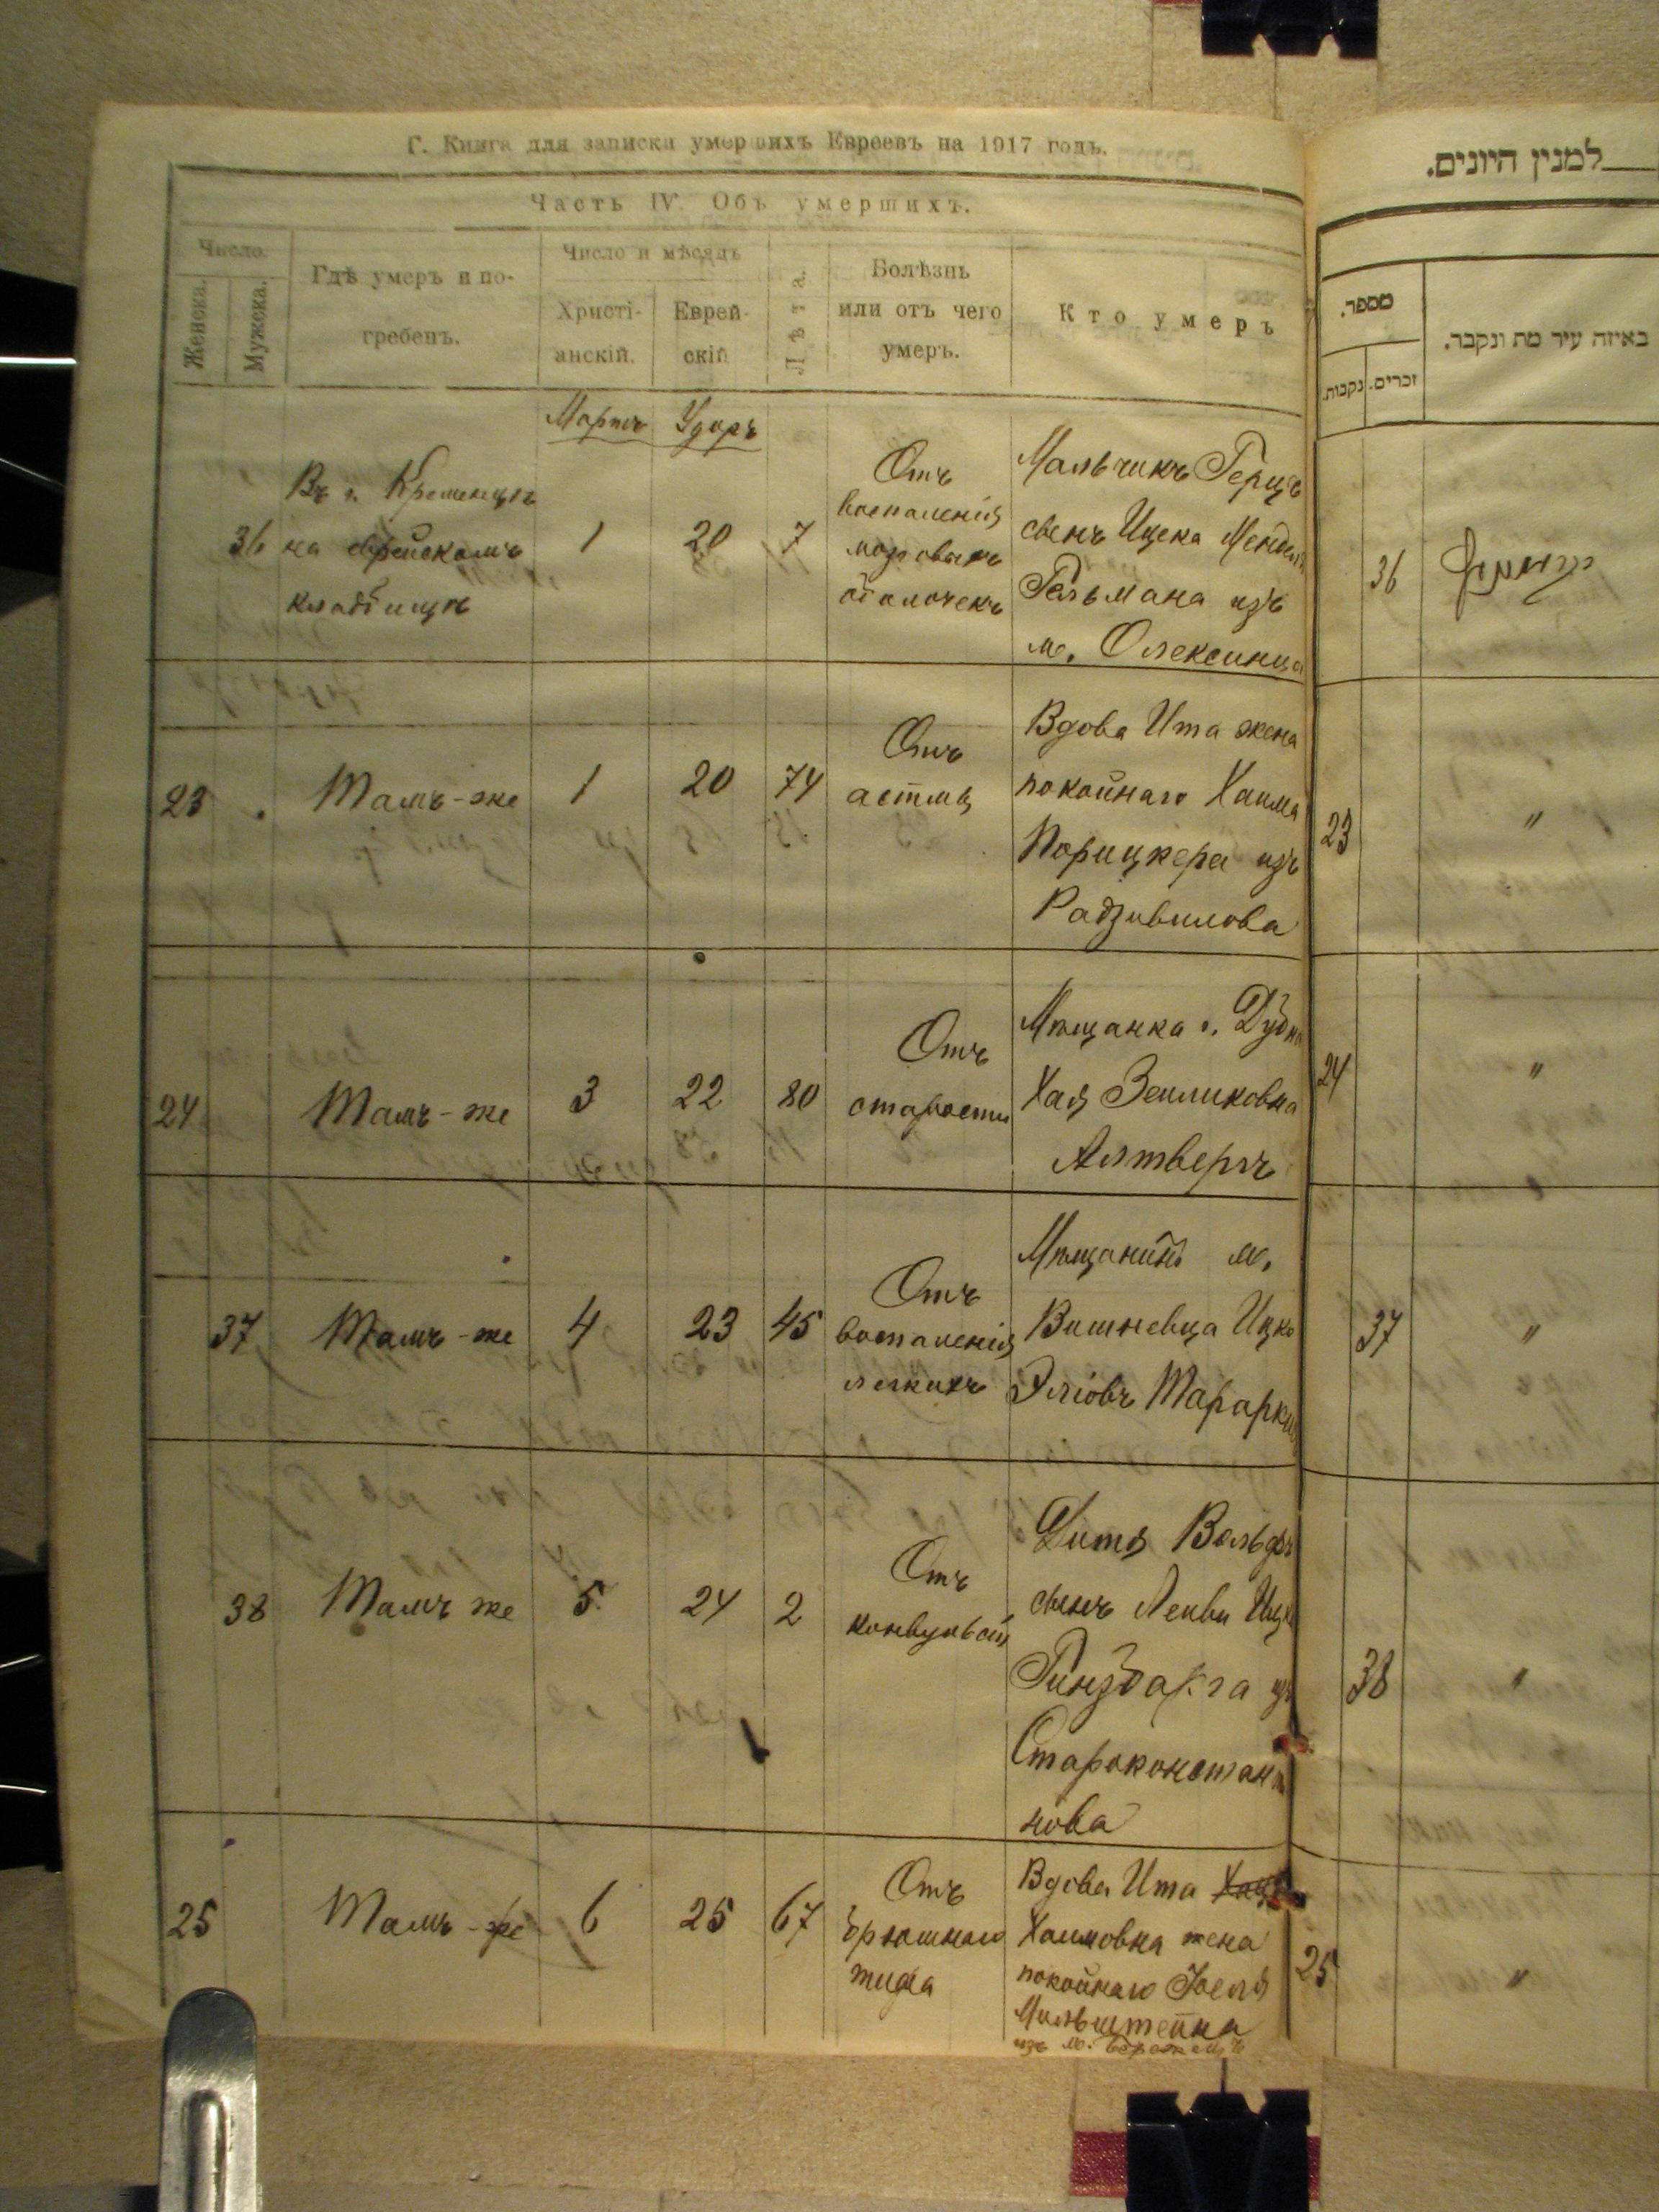 Г. Книга для записки умершихъ Евреевъ на 1917 годъ.
Часть IV. Объ умершихъ.
Число.
Женска.
Мужска.
Гдѣ умеръ и по-
гребенъ.
Число и мѣсяцъ
Христі-
анскій.
Еврей-
скій
Лѣта.
Болѣзнь
или отъ чего
умеръ.
Кто умеръ
Мартъ
36
Въ г. Кременцѣ
на еврейскомъ
кладбищѣ
1
20
7
Отъ
воспаленія
мозговыхъ
оболочекъ
Мальчикъ Герцъ
сынъ Ицека Менделя
Гельмана изъ
м. Олексинца
23
Тамъ-же
1
20
74
Отъ
астмы
Вдова Ита жена
покойнаго Хаима
Порицкера изъ
Радзивилова
24
Тамъ-же
3
22
80
Отъ
старости
Мѣщанка г. Дубно
Хая Зейликовна
37
Тамъ-же
4
23
45
Отъ
воспаленія
легкихъ
Мѣщанинъ м.
Вишневца Ицко
Эліовъ
38
Тамъ же
5
24
2
Отъ
конвульсій
Дитя Вольфъ
сынъ Лейви
изъ
Староконстанти
нова
25
Тамъ-же
6
25
67
Отъ
брюшного
тифа
Вдова Ита
Хаимовна жена
покойнаго Іоеля
Мильштейна
изъ м.
למנין היונים.
מספר.
נקבות.
זכרים.
באיזה עיר מת ונקבר.
36
23
"
24
"
37
"
38
"
25
"